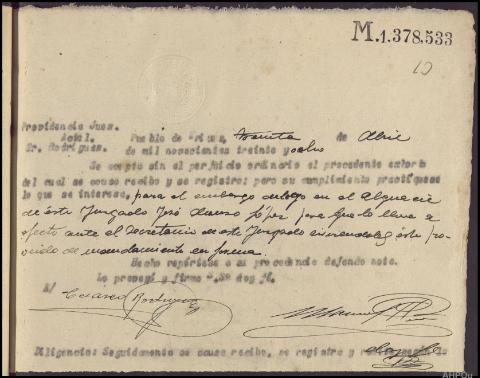 M.1.378.533
10
Providencia Juez
Actal. Pueblo de Brians, treinta de Abril
Sr. Rodriguez. de mil novecientos treinta y ocho
Se acepta sin el perjuicio ordinario el precedente exhorto
del cual se acuse recibo y se registre; pero su cumplimiento practiquese
lo que se interesa, para el embargo delego en el Alguacil
de éste Juzgado José para que lo lleve a
efecto ante el Secretario de este Juzgado sirviendole éste pro-
veido de mandamiento en forma.
Hecho repórtese a su procedencia dejando nota.
Lo proveyó y firma S.Sª doy fé.
E/
Diligencia: Seguidamente se acusa recibo, se registra y
AHPOu